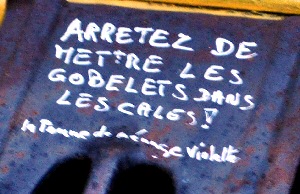 ARRETEZ DE
METTRE LES
GOBELETS DANS
LES CALES!
la femme de ménage Violette